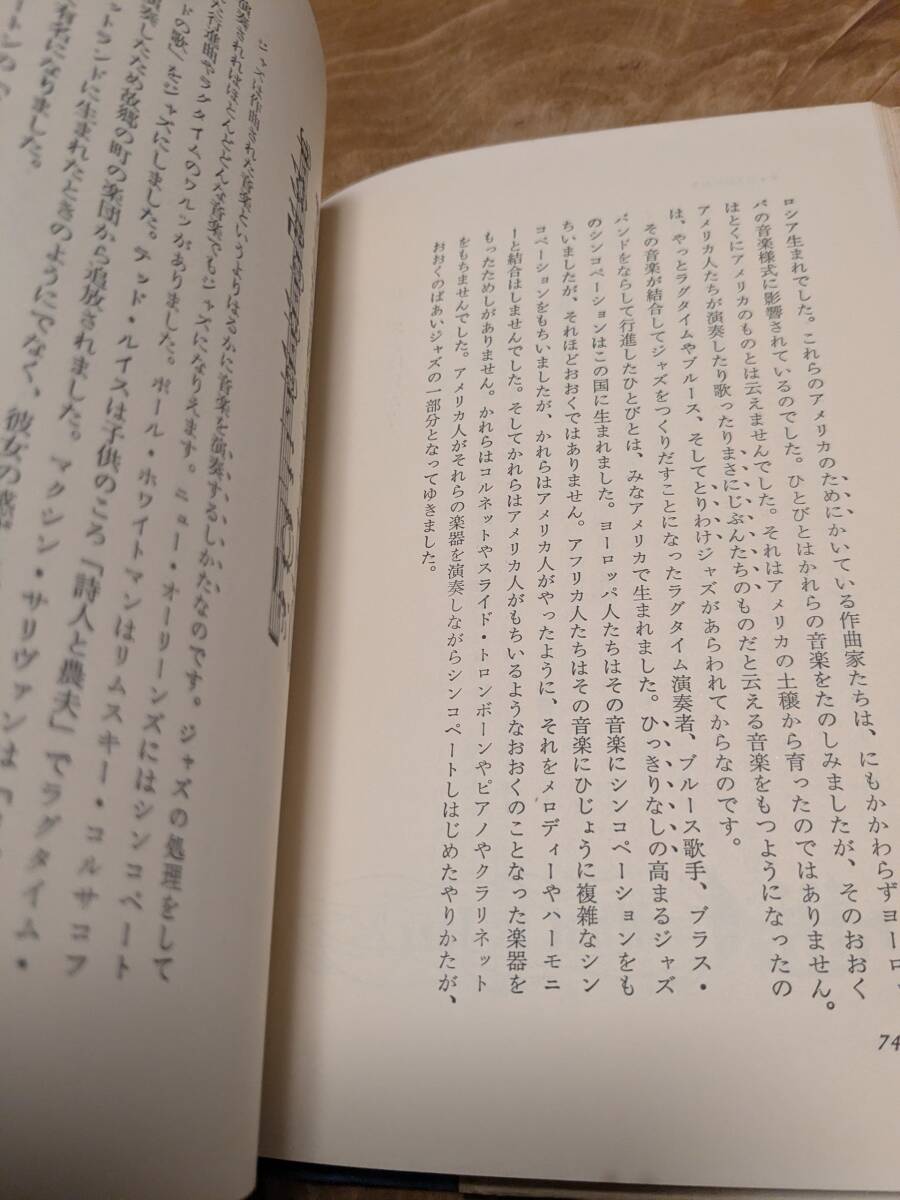 ロシア生まれでした。これらのアメリカのためにかいている作曲家たちは、にもかかわらずヨーロッ
パの音楽様式に影響されているのでした。ひとびとはかれらの音楽をたのしみましたが、そのおおく
はとくにアメリカのものとは云えませんでした。それはアメリカの土穣から育ったのではありません。
アメリカ人たちが演奏したり歌ったりまさにじぶんたちのものだと云える音楽をもつようになったの
は、やっとラグタイムやブルース、そしてとりわけジャズがあらわれてからなのです。
その音楽が結合してジャズをつくりだすことになったラグタイム演奏者、ブルース歌手、ブラス・
バンドをならして行進したひとびとは、みなアメリカで生まれました。ひっきりなしの高まるジャズ
のシンコペーションはこの国に生まれました。ヨーロッパ人たちはその音楽にシンコペーションをも
ちいましたが、それほどおおくではありません。アフリカ人たちはその音楽にひじょうに複雑なシン
コペーションをもちいましたが、かれらはアメリカ人がやったように、それをメロディーやハーモニ
ーと結合はしませんでした。そしてかれらはアメリカ人がもちいるようなおおくのことなった楽器を
もったためしがありません。かれらはコルネットやスライド・トロンボーンやピアノやクラリネット
をもちませんでした。アメリカ人がそれらの楽器を演奏しながらシンコペートしはじめたやりかたが、
おおくのばあいジャズの一部分となってゆきました。
74
ジャズは作曲された音楽というよりはるかに音楽を演奏するしかたなのです。ジャズの処理をして
演奏されればほとんどどんな音楽でもジャズになりえます。ニュー・オーリーンズにはシンコペート
た行進曲やラグタイムのワルツがありました。ポール・ホワイトマンはリムスキー・コルサコフ
ドの歌」をジャズにしました。テッド・ルイスは子供のころ「詩人と農夫」でラグタイム・
演奏したため故郷の町の楽団から追放されました。マクシン・サリヴァンは「
ットランドに生まれたときのようにでなく、彼女の
有名になりました。